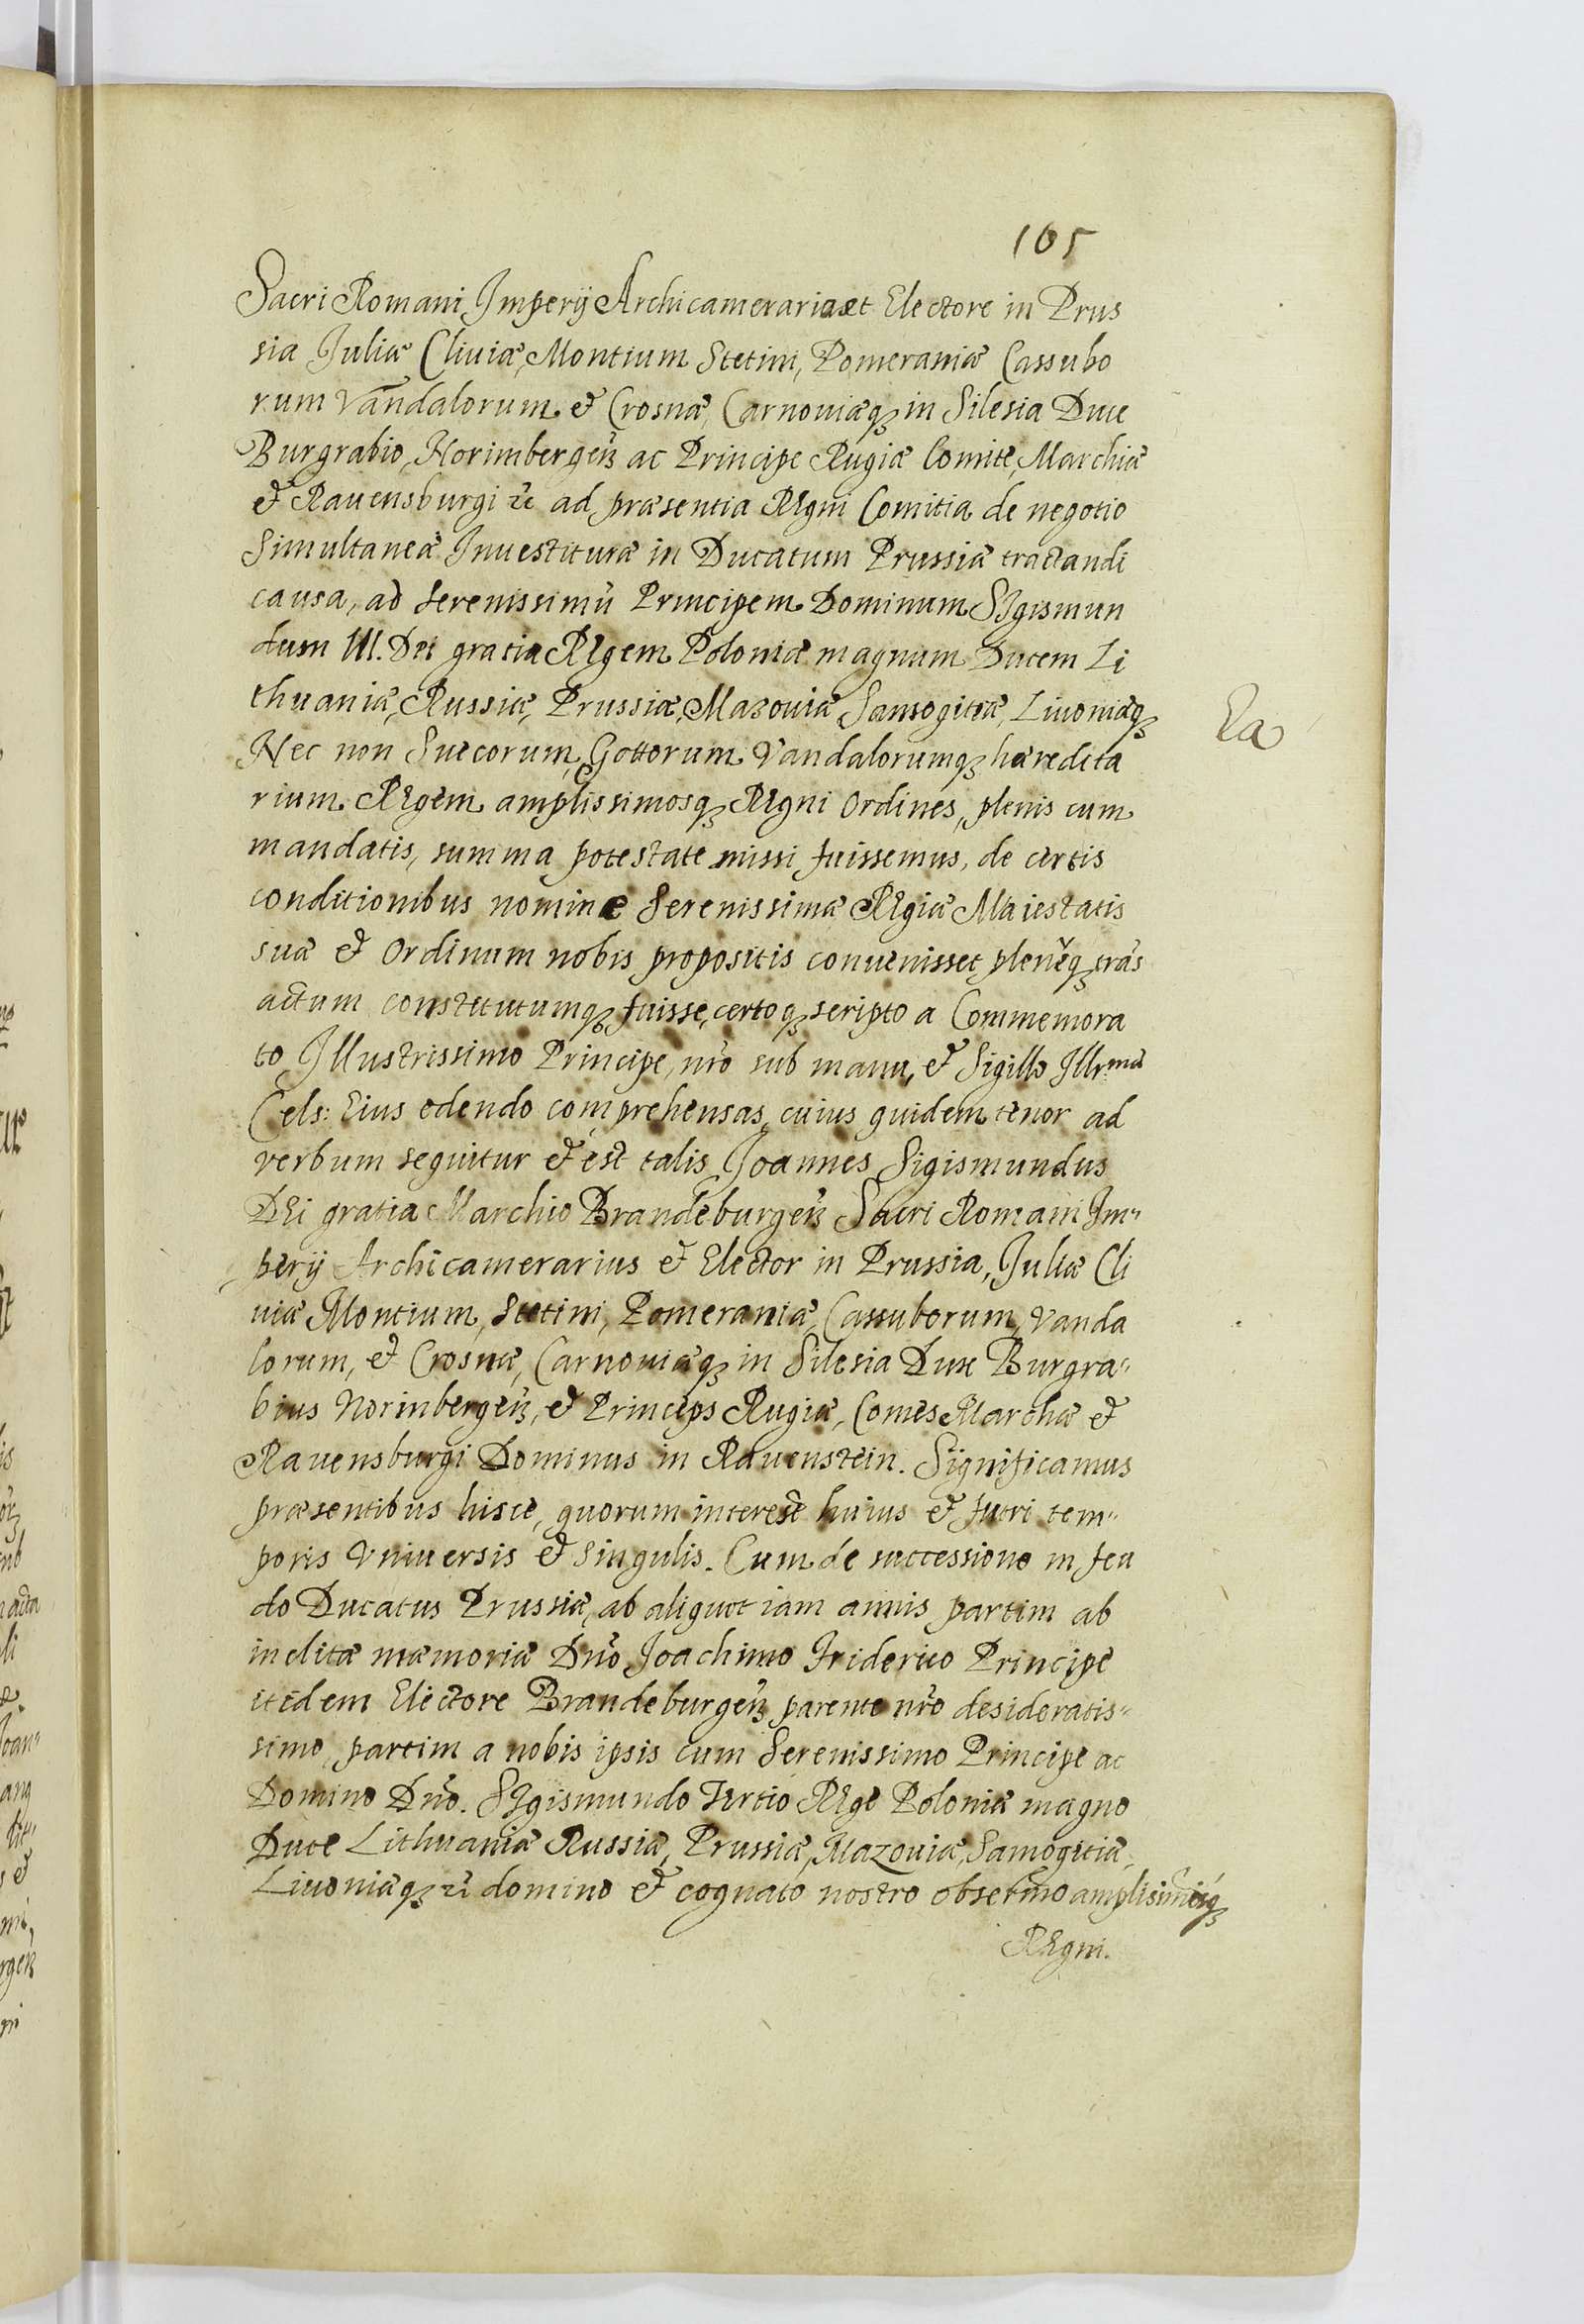 105
Sacri Romani Imperij Archicamerario et Electore in Prus
sia Juliæ Cliuiæ, Montium Stetini, Pomeraniæ Cassubo
rum Vandalorum et Crosnæ, Carnouiæq in Silesia Duce
Burgrabio Norimbergen ac Principe Rugiæ Comite, Marchiæ
et Rauensburgi etc ad præsentia Regni Comitia de negotio
Simultaneæ Inuestituræ in Ducatum Prussiæ tractandi
causa, ad Serenissimū Principem Dominum Sigismun
dum III. Dei gratia Regem Poloniæ magnum Ducem Li
thuaniæ, Russiæ, Prussiæ, Mazouiæ Samogitiæ, Liuoniæq
Ea
Nec non Suecorum, Gottorum Vandalorumq hæredita
rium Regem amplissimosq Regni Ordines, plenis cum
mandatis, summa potestate missi fuissemus, de certis
conditionibus nomine Serenissimæ Regiæ Maiestatis
suæ et Ordinum nobis propositis conuenisset pleneq trās
actum constitutumq fuisse, certoq scripto a Commemora
to Illustrissimo Principe, nrō sub manu, et Sigillo Illrmæ
Cels: Eius edendo comprehensas, cuius quidem tenor ad
verbum sequitur et est talis Joannes Sigismundus
Dei gratia Marchio Brandeburgen Sacri Romani Im"
perij Archicamerarius et Elector in Prussia, Juliæ Cli
uiæ Montium, Stetini, Pomeraniæ, Cassuborum, Vanda
lorum, et Crosnæ, Carnouiæq in Silesia Dux Burgra"
bius Norinbergen, et Princeps Rugiæ, Comes Marchæ et
Rauensburgi Dominus in Rauenstein. Significamus
præsentibus hisce, quorum interest huius et futri tem"
poris Vniuersis et singulis. Cum de successione in feu
do Ducatus Prussiæ, ab aliquot iam annis partim ab
inclitæ mæmoriæ Dnō Joachimo Friderico Principe
itidem Electore Brandeburgen parente nrō desideratis"
simo, partim a nobis ipsis cum Serenissimo Principe ac
Domino Dnō. Sigismundo Tertio Rege Poloniæ magno
Duce Lithuaniæ Russiæ, Prussiæ, Mazouiæ, Samogitiæ,
Liuoniæq etc domino et cognato nostro obsermo amplisimisq
Regni.